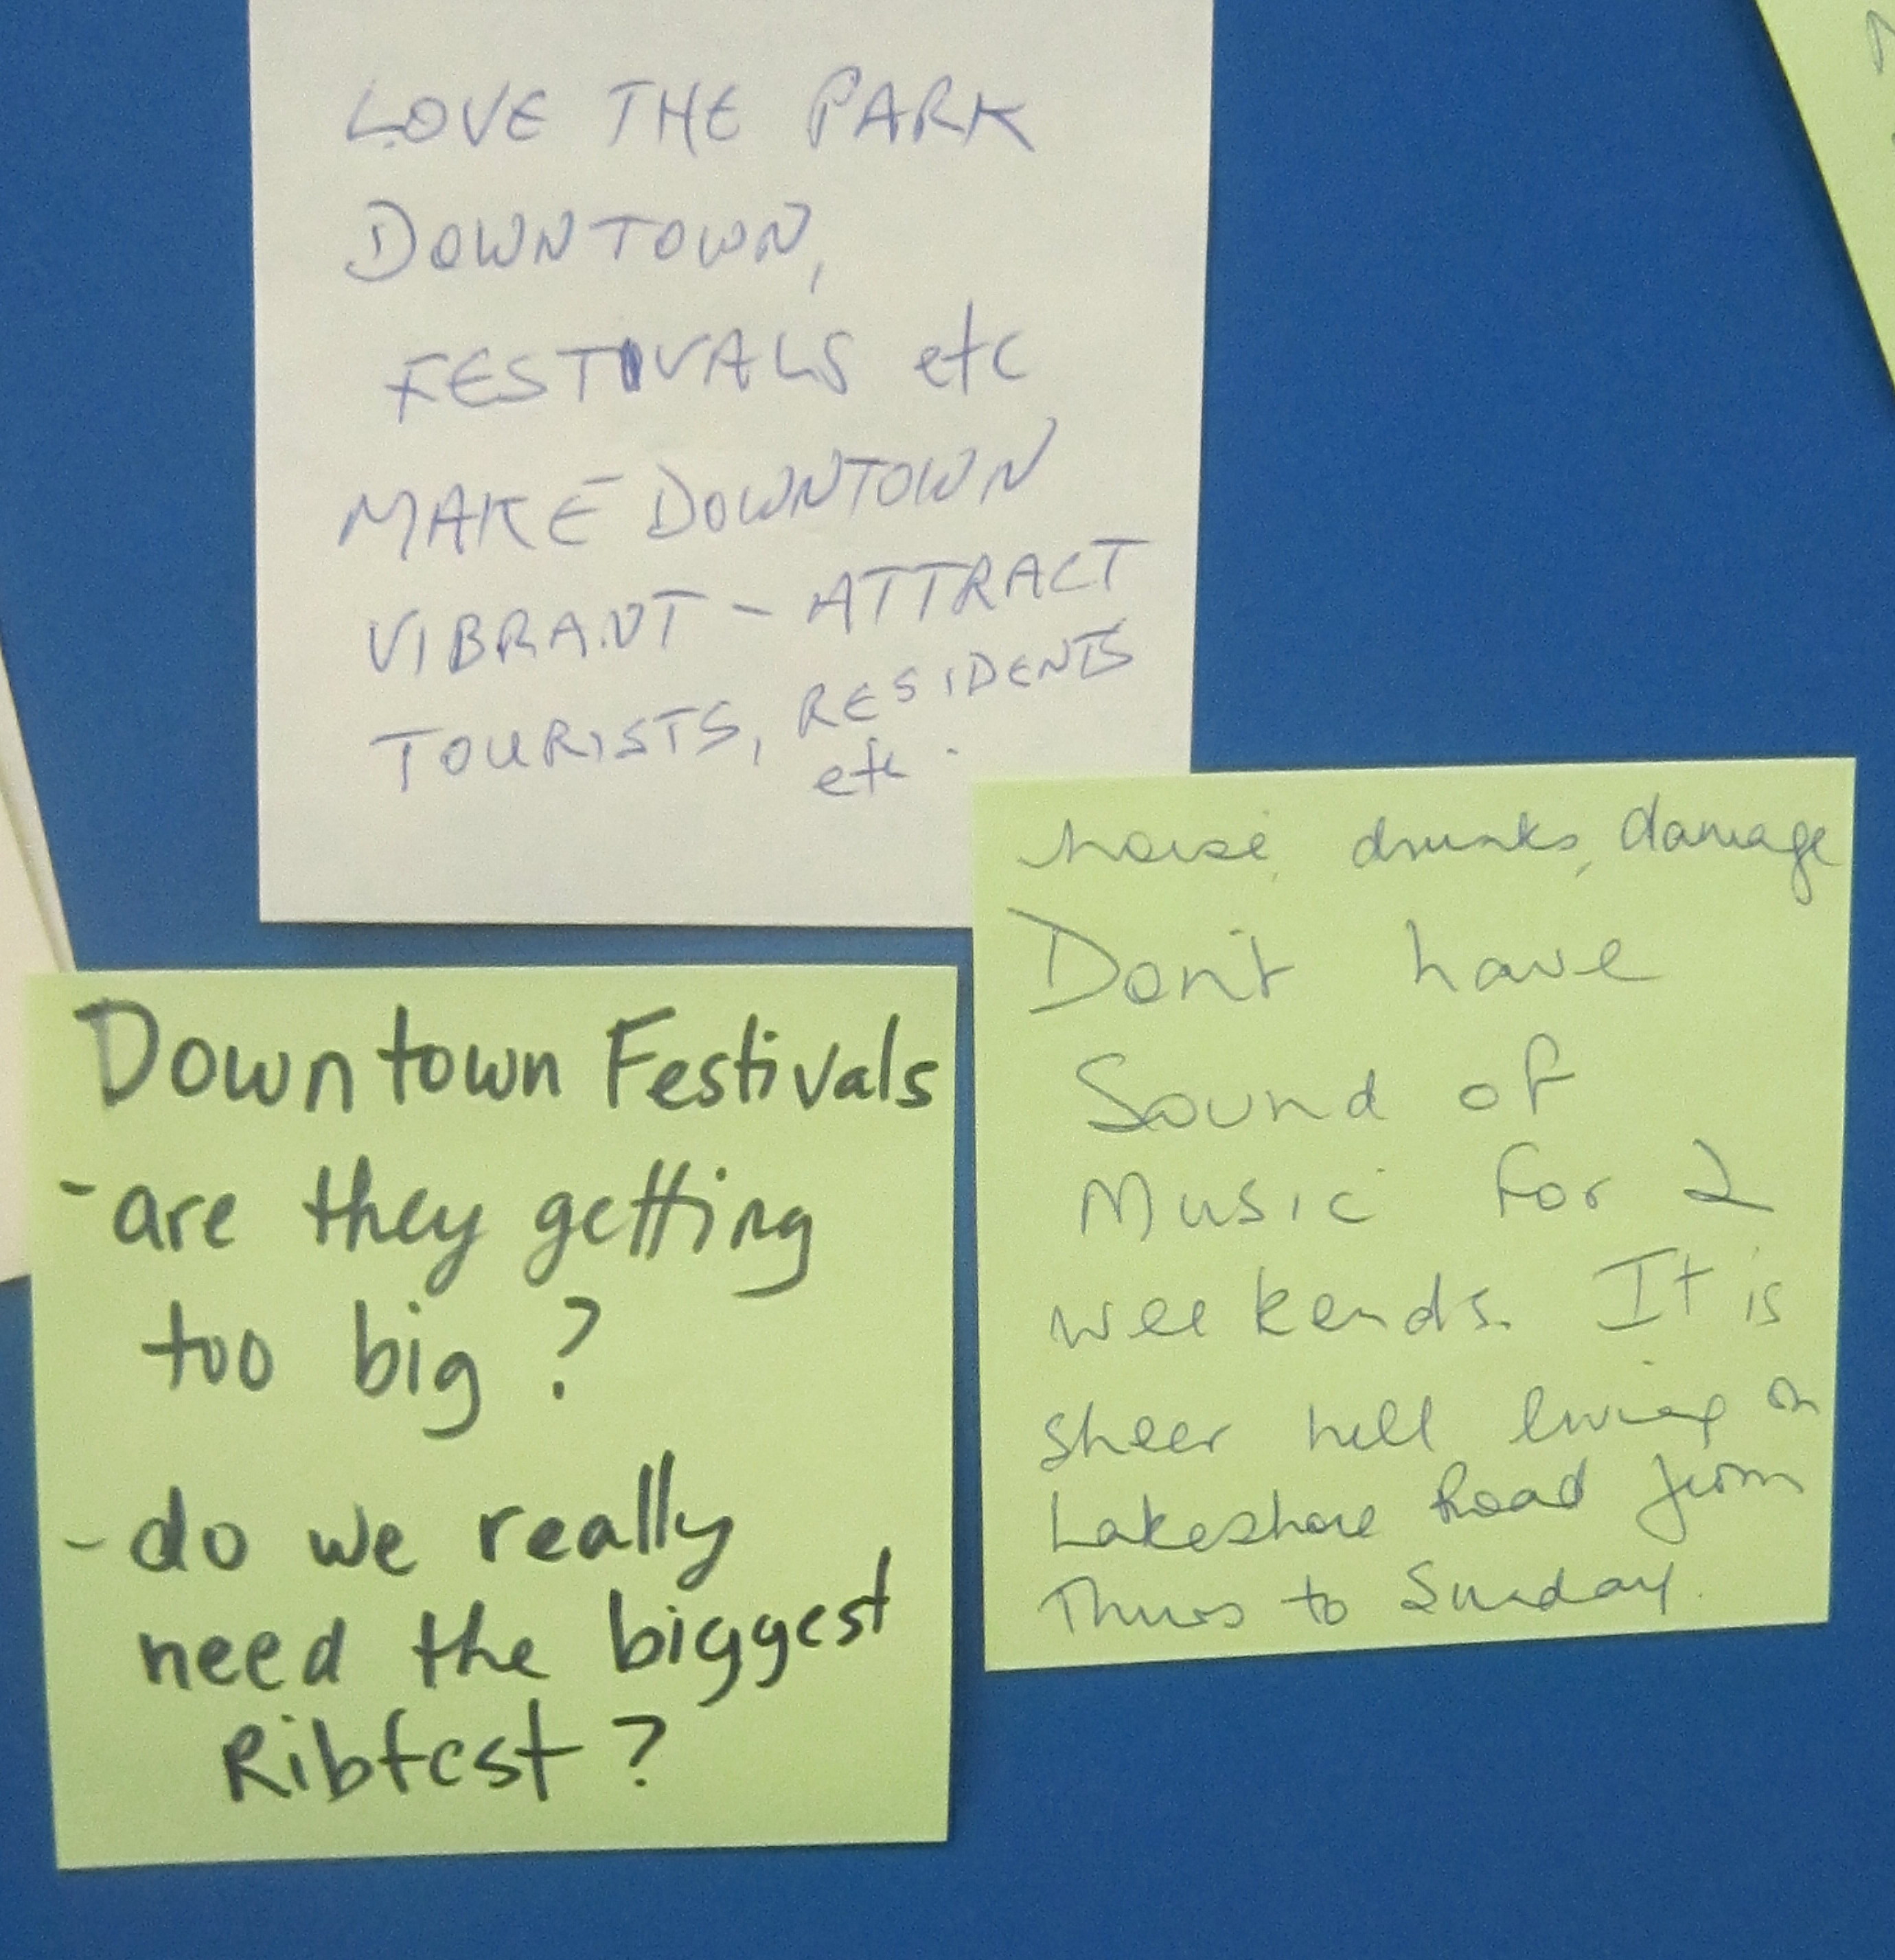 LOVE THE PARK
DOWNTOWN,
FESTIVALS etc
MAKE DOWNTOWN
VIBRANT - ATTRACT
TOURISTS, RESIDENTS
etc.
noise, drunks, damage
Don't have
Sound of
Music for 2
weekends. It is
sheer hell living on
Lakeshore Road from
Thurs to Sunday.
Downtown Festivals
- are they getting
too big?
- do we really
need the biggest
Ribfest?